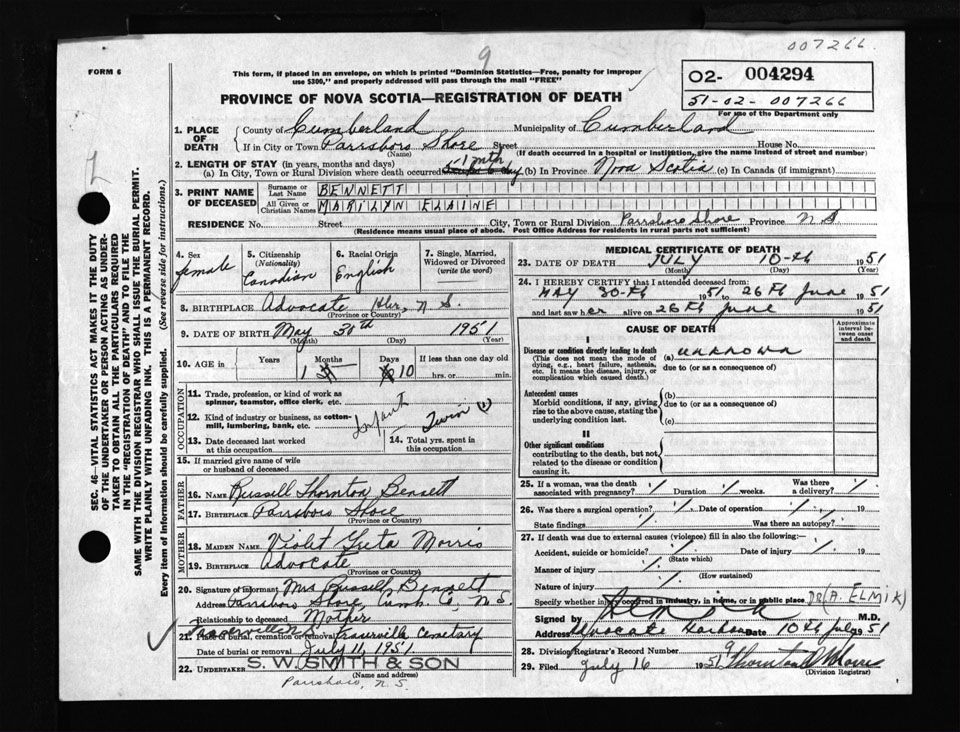 007266
9
FORM 6
This form, if placed in an envelope, on which is printed "Dominion Statistics—Free, penalty for improper
use $300," and properly addressed will pass through the mail "FREE"
02- 004294
51-02-007266
For use of the Department only
PROVINCE OF NOVA SCOTIA—REGISTRATION OF DEATH
1. PLACE OF DEATH
County of Cumberland Municipality of Cumberland
If in City or Town Parrsboro Shore Street House No.
(Name) (If death occurred in a hospital or institution, give the name instead of street and number)
2. LENGTH OF STAY (in years, months and days)
(a) In City, Town or Rural Division where death occurred 1 mth day (b) In Province Nova Scotia (c) In Canada (if immigrant)
3. PRINT NAME OF DECEASED
Surname or Last Name BENNETT
All Given or Christian Names MARILYN ELAINE
RESIDENCE No. Street City, Town or Rural Division Parrsboro Shore Province N.S.
(Residence means usual place of abode. Post Office Address for residents in rural parts not sufficient)
4. Sex
female
5. Citizenship (Nationality)
Canadian
6. Racial Origin
English
7. Single, Married, Widowed or Divorced (write the word)
8. BIRTHPLACE Advocate Hbr, N S.
(Province or Country)
9. DATE OF BIRTH May 30th 1951
(Month) (Day) (Year)
10. AGE in Years Months Days If less than one day old
1 10 hrs. or min.
OCCUPATION
11. Trade, profession, or kind of work as
spinner, teamster, office clerk, etc.
12. Kind of industry or business, as cotton-
mill, lumbering, bank, etc.
Infant Twin (1)
13. Date deceased last worked
at this occupation
14. Total yrs. spent in
this occupation
15. If married give name of wife
or husband of deceased
FATHER
16. NAME Russell Thornton Bennett
17. BIRTHPLACE Parrsboro Shore
(Province or Country)
MOTHER
18. MAIDEN NAME Violet Greta Morris
19. BIRTHPLACE Advocate
(Province or Country)
20. Signature of informant Mrs Russell Bennett
Address Parrsboro Shore, Cumb. Co, N.S.
Relationship to deceased Mother
21. Place of burial, cremation or removal Cemetery
Date of burial or removal July 11, 1951
22. UNDERTAKER S. W. SMITH & SON
(Name and address)
Parrsboro, N.S.
MEDICAL CERTIFICATE OF DEATH
23. DATE OF DEATH JULY 10th 1951
(Month) (Day) (Year)
24. I HEREBY CERTIFY that I attended deceased from:
MAY 30th 1951 to 26th June 1951
and last saw her alive on 26th June 1951
CAUSE OF DEATH
Approximate interval between onset and death
I
Disease or condition directly leading to death (a) unknown
(This does not mean the mode of dying, e.g., heart failure, asthenia, etc. It means the disease, injury, or complication which caused death.
due to (or as a consequence of)
Antecedent causes (b)
Morbid conditions, if any, giving rise to the above cause, stating the underlying condition last.
due to (or as a consequence of)
(c)
II
Other significant conditions
contributing to the death, but not related to the disease or condition causing it.
25. If a woman, was the death associated with pregnancy? Duration weeks. Was there a delivery?
26. Was there a surgical operation? Date of operation 19
State findings Was there an autopsy?
27. If death was due to external causes (violence) fill in also the following:—
Accident, suicide or homicide? Date of injury 19
(State which)
Manner of injury
(How sustained)
Nature of injury
Specify whether injury occurred in industry, in home, or in public place
DR (A. ELMIK)
Signed by M.D.
Address Advocate Harbour Date 10th July 1951
28. Division Registrar's Record Number
29. Filed July 16 1951
(Division Registrar)
SEC. 46—VITAL STATISTICS ACT MAKES IT THE DUTY
OF THE UNDERTAKER OR PERSON ACTING AS UNDER-
TAKER TO OBTAIN ALL THE PARTICULARS REQUIRED
IN THE "REGISTRATION OF DEATH" AND TO FILE THE
SAME WITH THE DIVISION REGISTRAR WHO SHALL ISSUE THE BURIAL PERMIT.
WRITE PLAINLY WITH UNFADING INK. THIS IS A PERMANENT RECORD.
Every item of information should be carefully supplied. (See reverse side for instructions.)